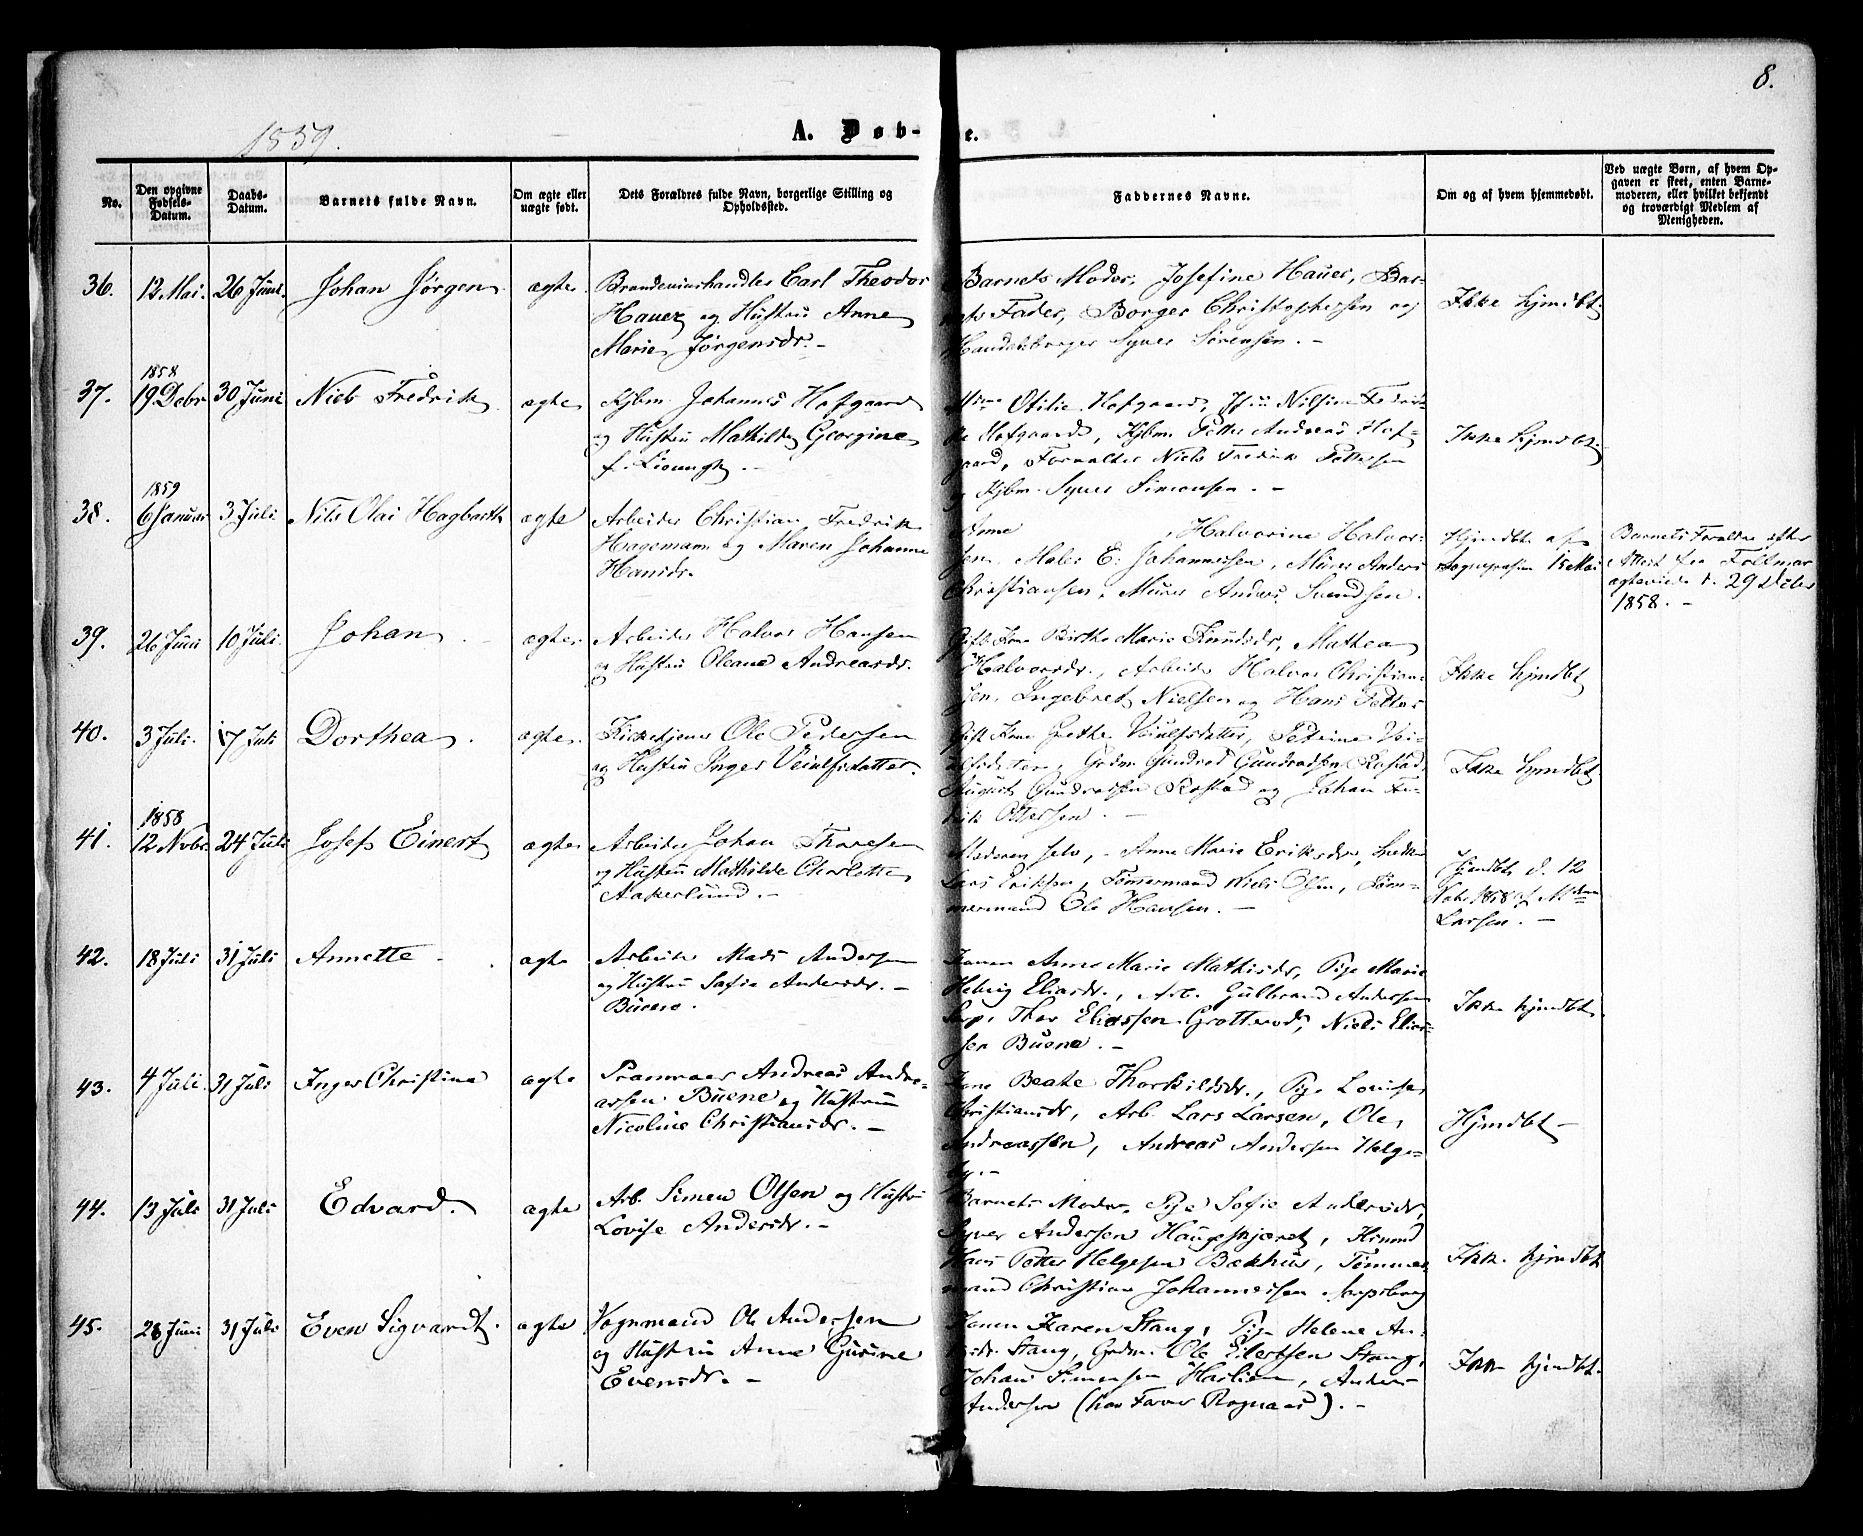 8.
1859.
A. Døb-
e.
No.
Den opgivne Fødsels-Datum.
Daabs-Datum.
Barnets fulde Navn.
Om ægte eller uægte født.
Dets Forældres fulde Navn, borgerlige Stilling og Opholdssted.
Faddernes Navne.
Om og af hvem hjemmedøbt.
Ved uægte Børn, af hvem Opgaven er skeet, enten Barnemoderen, eller hvilket bekjendt og troværdigt Medlem af Menigheden.
36. 12 Mai. 26 Juni. Johan Jørgen ægte
Brændeviinshandler Carl Theodor
Hauer og Hustru Anne
Marie Jørgensdr. –
Barnets Moder, Josefine Hauer, Bar-
Fader, Borger Christophersen og
Handelsborger Syver Sørensen. –
Ikke hjmdbt
37. 1858 19 Debr 30 Juni Niels Fredrik ægte
Kjbm. Johannes Hofgaard
og Hustru Mathilde Georgine
f. –
Otilie Hofgaard, Nilsine Fedrik-
Hofgaard, Kjbm. Petter Andreas Hof-
gaard, Forvalter Niels Fredrik Pettersen
og Kjbm. Syver Simonsen. –
Ikke hjmdbt.
38. 1859 6 Januar 3 Juli. Nils Olai Hagbarth ægte
Arbeider Christian Fredrik
Hagemann og Maren Johanne
Hansdr.
Anne , Halvorine Halvor-
sen, Maler E. Johannessen, Murer Anders
Christiansen, Murer Anders Svendsen.
Hjmdbt af
15 Mai
Barnets Forældre efter
Attest fra
ægteviede d. 29 Deber
1858. –
39. 26 Juni 10 Juli. Johan ægte
Arbeider Halvor Hansen
og Hustru Oleane Andreasdr.
Gift Kone Birthe Marie Knudsdr, Mathea
Halvorsdr., Arbeider Halvor Christian-
sen, Ingebret Nielsen og Hans Petter
Ikke hjmdbt
40. 3 Juli. 17 Juli Dorthea. ægte
Kirketjener Ole Pedersen
og Hustru Inger Veiulfsdatter.
Gift Kone Grethe Veiulfsdatter, Petrine Vei-
ulfsdatter, Grdm Gundrod Gundrodsen Rostad,
August Gundrodsen Rostad og Johan Fr-
Ottersen. –
Ikke hjmdbt
41. 1858 12 Nvbr 24 Juli Josef Einert ægte
Arbeider Johan Thoresen
og Hustru Mathilde Charlotte
Aakerlund. –
Moderen selv, Anne Marie Eriksdr, Snedker
Lars Eriksen, Tømmermand Niels Olsen, Tøm-
mermand Ole Hansen. –
Hjmdbt d. 12
Nvbr 1858 af Mdm
Larsen. –
42. 18 Juli 31 Juli Annette – ægte
Arbeider Mads Andersen
og Hustru Sofie Andersdr. –
Buene.
Konen Anne Marie Mathisdr, Pige Marie
Helvig Eliasdr., Arb. Gulbrand Andersen
Thor Eliassen Grotterød, Niels Elias-
sen Buene. –
Ikke hjmdbt.
43. 4 Juli. 31 Juli Inger Christine ægte
Andreas Andre-
assen Buene og Hustru
Nicoline Christiansdr. –
Kone Beate Thorkildsdr., Pige Lovise
Christiansdr, Arb. Lars Larsen, Ole
Andreassen, Andreas Andersen Helge-
by. –
Hjmdbt –
44. 13 Juli 31 Juli Edvard. ægte
Arb. Simen Olsen og Hustru
Lovise Andersdr. –
Barnets Moder, Pige Sofie Andersdr,
Syver Andersen Haugeskjæret, Hmnd
Hans Petter Helgesen Bækhus, Tømmer-
mand Christian Johannessen Sarpsborg
Ikke hjmdbt
45. 28 Juni 31 Juli Even Sigvardt. ægte
Vognmand Ole Andersen
og Hustru Anne Gurine
Evensdr. –
Konen Karen Stang, Pige Helene An-
Stang, Grdm. Ole Eilertsen Stang,
Johan Simensen Haslien, Anders
Andersen (hos Farver Rognaas). –
Ikke hjmdbt.